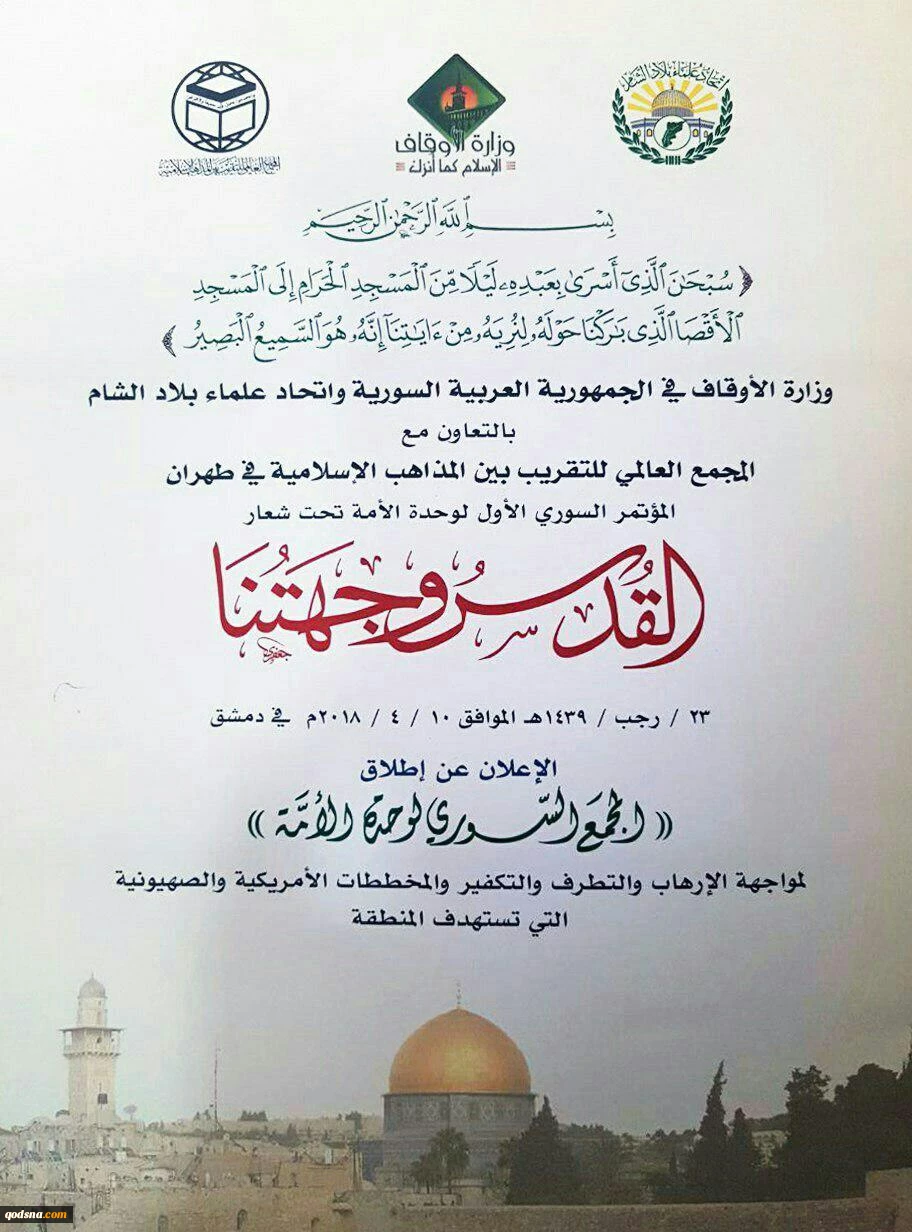 اتحاد علماء بلاد الشام
وزارة الأوقاف
الإسلام كما أنزل
المجمع العالمي للتقريب بين المذاهب الإسلامية
بِسْمِ ٱللَّهِ ٱلرَّحْمَٰنِ ٱلرَّحِيمِ
﴿ سُبْحَٰنَ ٱلَّذِىٓ أَسْرَىٰ بِعَبْدِهِۦ لَيْلًا مِّنَ ٱلْمَسْجِدِ ٱلْحَرَامِ إِلَى ٱلْمَسْجِدِ
ٱلْأَقْصَا ٱلَّذِى بَٰرَكْنَا حَوْلَهُۥ لِنُرِيَهُۥ مِنْ ءَايَٰتِنَآ إِنَّهُۥ هُوَ ٱلسَّمِيعُ ٱلْبَصِيرُ ﴾
وزارة الأوقاف في الجمهورية العربية السورية واتحاد علماء بلاد الشام
بالتعاون مع
المجمع العالمي للتقريب بين المذاهب الإسلامية في طهران
المؤتمر السوري الأول لوحدة الأمة تحت شعار
القُدسُ وجهَتُنَا
جعفري
٢٣ / رجب / ١٤٣٩هـ الموافق ١٠ / ٤ / ٢٠١٨م في دمشق
الإعلان عن إطلاق
(( المجمَع السّوري لوحدة الأمَّة ))
لمواجهة الإرهاب والتطرف والتكفير والمخططات الأمريكية والصهيونية
التي تستهدف المنطقة
qodsna.com